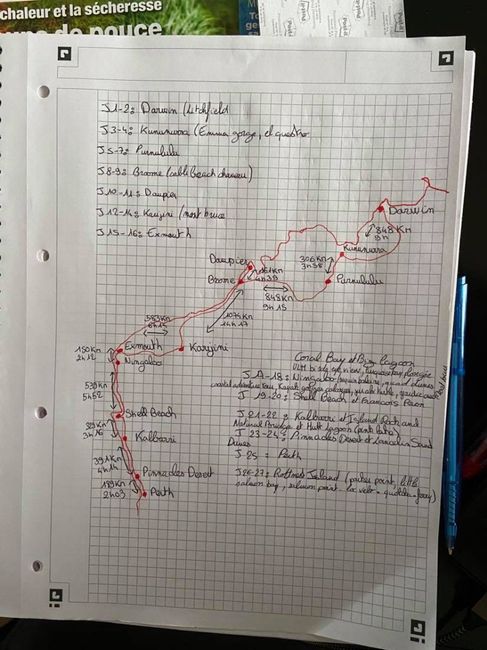 chaleur et la sécheresse
de pouce
J1-2: Darwin (Litchfield
J3-4: Kununurra (Emma gorge, el questro
J5-7: Purnululu
J8-9: Broome (cable beach chameau)
J10-11: Dampier
J12-14: Karijini (mont bruce
J15-16: Exmouth
Darwin
848 Km
9h
Kununurra
306Km
3h58
Purnululu
Dampier
Brome
161Km
4h39
848Km
9h15
1074Km
11h17
583Km
6h15
Karijini
150Km
Exmouth
Ningaloo
539Km
5h52
Shell Beach
Kalbarri
3h16
391Km
4h14
Pinnacles Desert
189Km
2h03
Perth
Coral Bay et Big Lagoon
J17-18: Ningaloo
J 19-20: Shell Beach et François Peron
J 21-22 = Kalbarri et Island Rock and
Natural Bridge et Hutt Lagoon (pink lake)
J 23-24: Pinnacles Desert et Lancelin Sand
Dunes
J-25 = Perth
J26-27: Rottnest Island (parker point, little
salmon bay, salmon point - vélo - quokka - ferry)